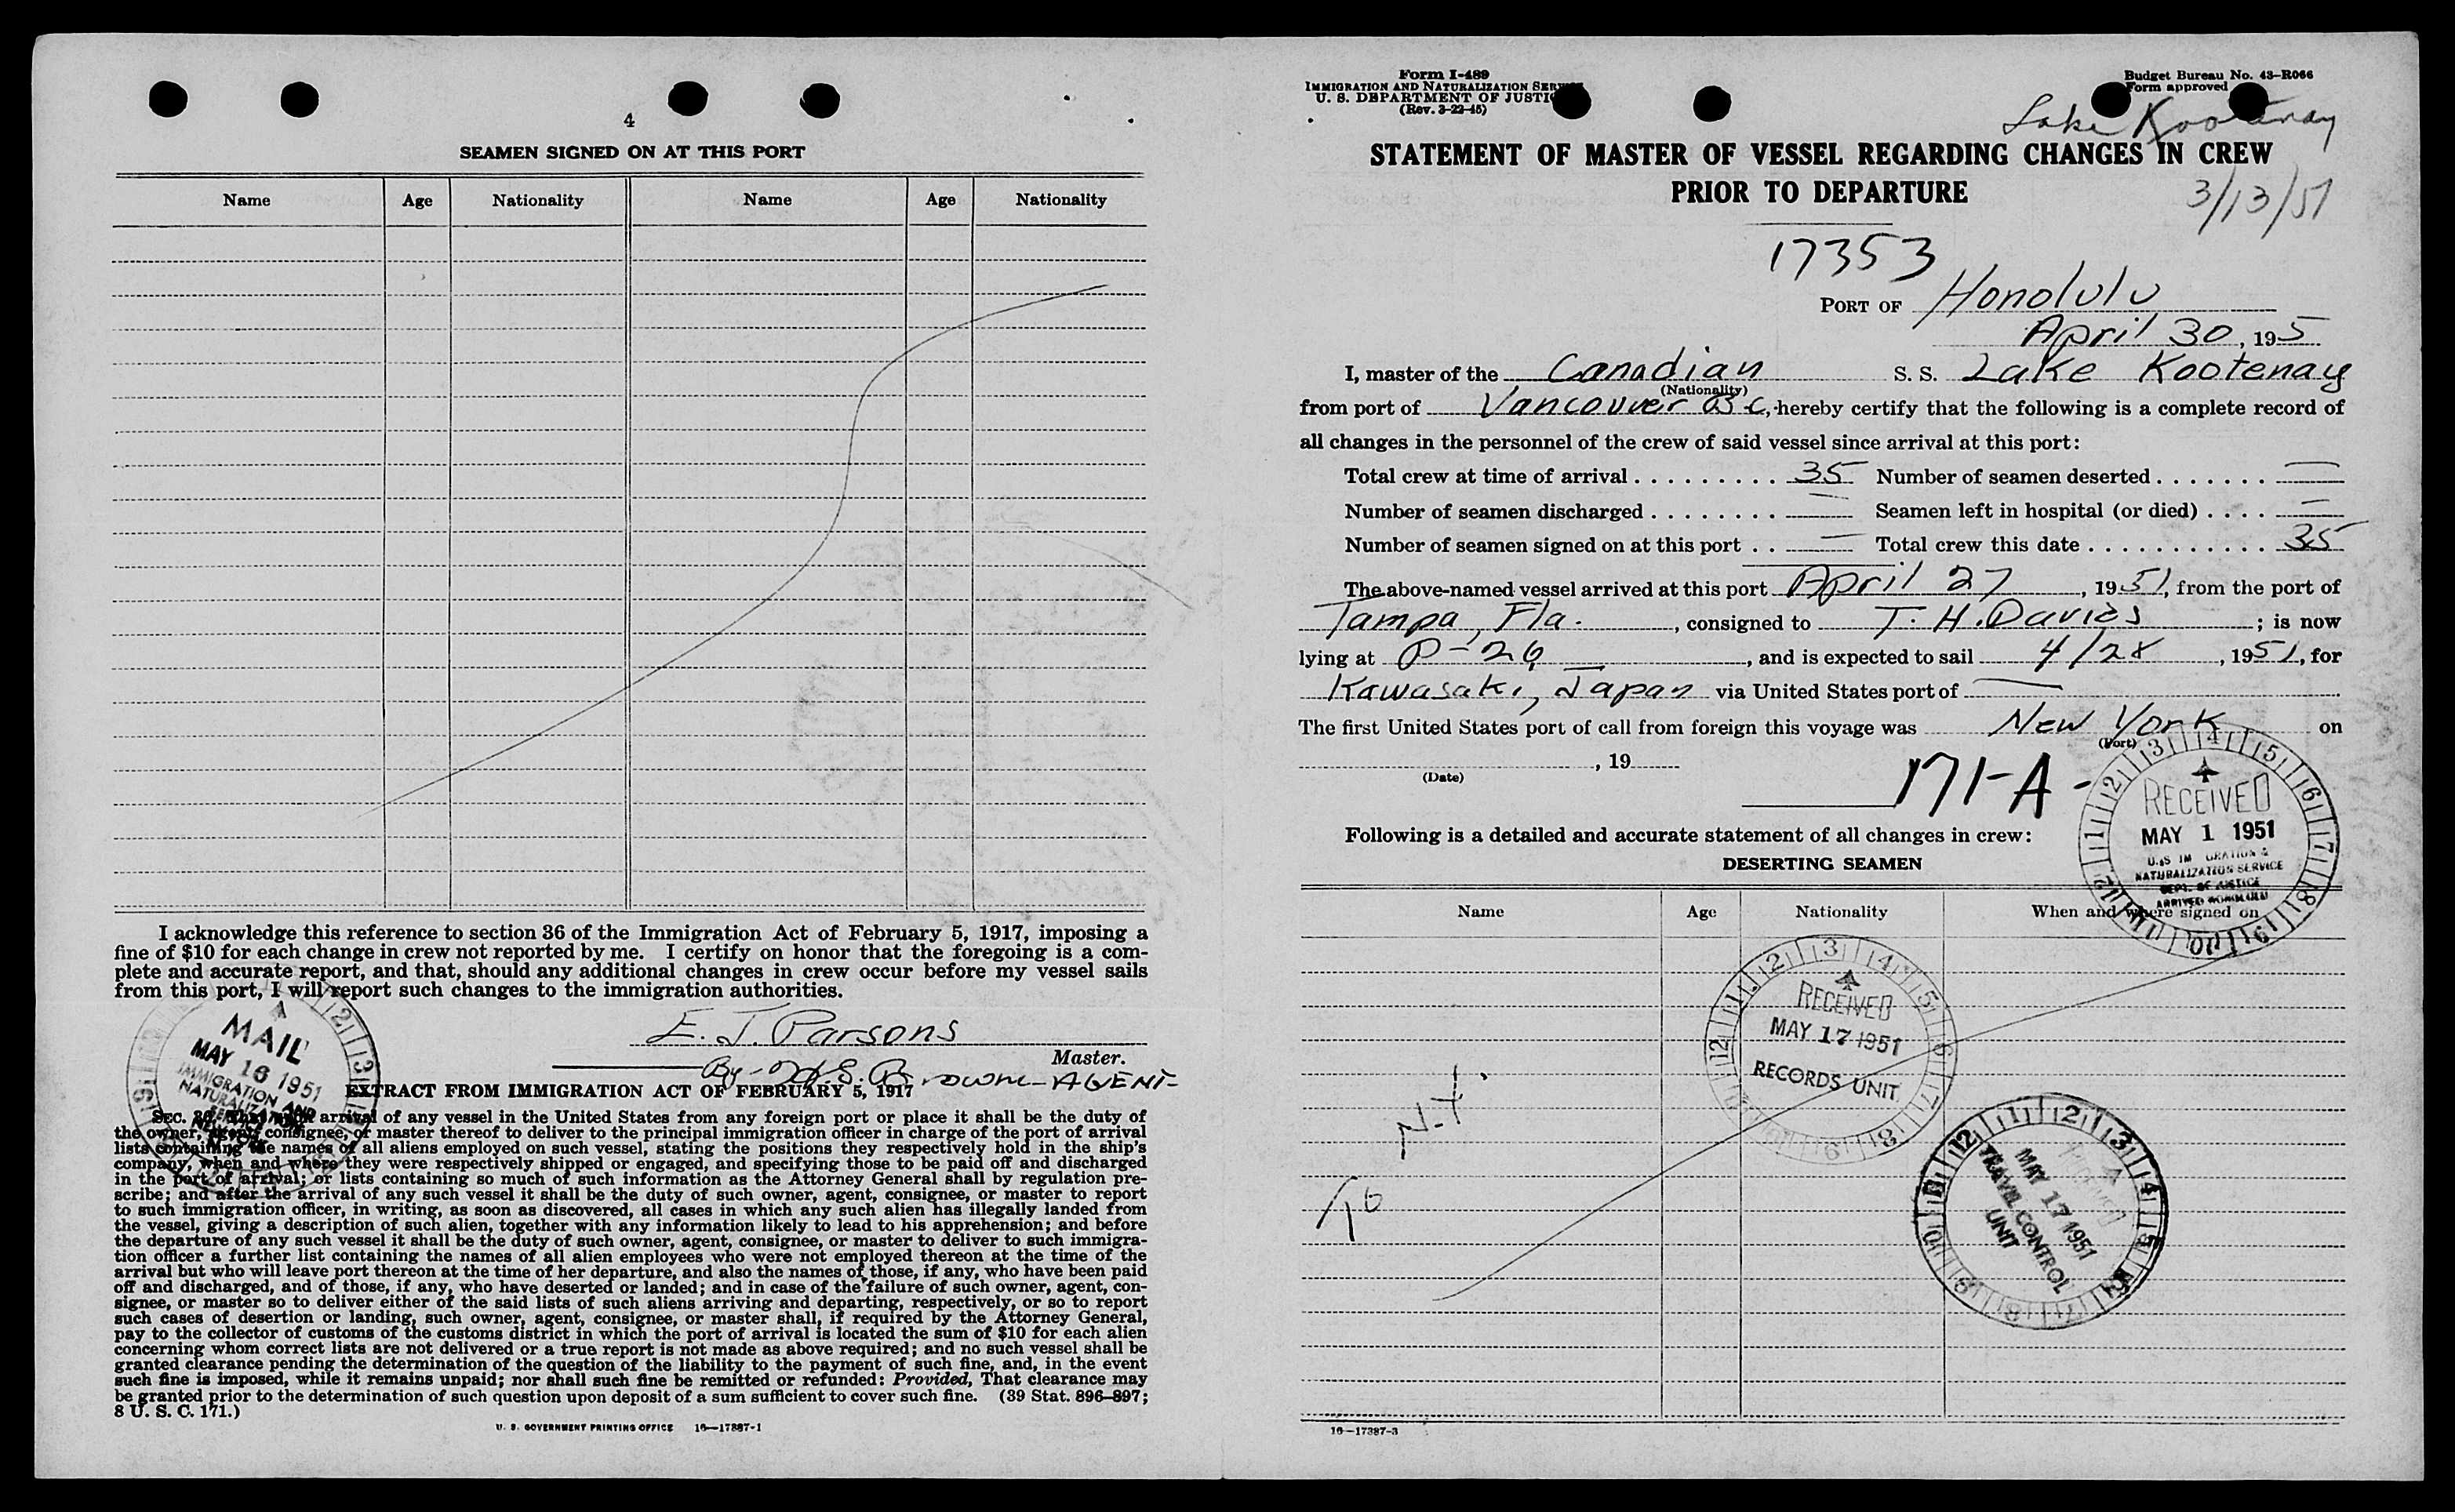 4
SEAMEN SIGNED ON AT THIS PORT
Name Age Nationality Name Age Nationality
I acknowledge this reference to section 36 of the Immigration Act of February 5, 1917, imposing a
fine of $10 for each change in crew not reported by me. I certify on honor that the foregoing is a com-
plete and accurate report, and that, should any additional changes in crew occur before my vessel sails
from this port, I will report such changes to the immigration authorities.
E. J. Parsons
Master.
By - S. Brown - AGENT
MAIL
MAY 16 1951
IMMIGRATION AND
EXTRACT FROM IMMIGRATION ACT OF FEBRUARY 5, 1917
SEC. 36. That upon arrival of any vessel in the United States from any foreign port or place it shall be the duty of
the owner, agent, consignee, or master thereof to deliver to the principal immigration officer in charge of the port of arrival
lists containing the names of all aliens employed on such vessel, stating the positions they respectively hold in the ship's
company, when and where they were respectively shipped or engaged, and specifying those to be paid off and discharged
in the port of arrival; or lists containing so much of such information as the Attorney General shall by regulation pre-
scribe; and after the arrival of any such vessel it shall be the duty of such owner, agent, consignee, or master to report
to such immigration officer, in writing, as soon as discovered, all cases in which any such alien has illegally landed from
the vessel, giving a description of such alien, together with any information likely to lead to his apprehension; and before
the departure of any such vessel it shall be the duty of such owner, agent, consignee, or master to deliver to such immigra-
tion officer a further list containing the names of all alien employees who were not employed thereon at the time of the
arrival but who will leave port thereon at the time of her departure, and also the names of those, if any, who have been paid
off and discharged, and of those, if any, who have deserted or landed; and in case of the failure of such owner, agent, con-
signee, or master so to deliver either of the said lists of such aliens arriving and departing, respectively, or so to report
such cases of desertion or landing, such owner, agent, consignee, or master shall, if required by the Attorney General,
pay to the collector of customs of the customs district in which the port of arrival is located the sum of $10 for each alien
concerning whom correct lists are not delivered or a true report is not made as above required; and no such vessel shall be
granted clearance pending the determination of the question of the liability to the payment of such fine, and, in the event
such fine is imposed, while it remains unpaid; nor shall such fine be remitted or refunded: Provided, That clearance may
be granted prior to the determination of such question upon deposit of a sum sufficient to cover such fine. (39 Stat. 896–897;
8 U. S. C. 171.)
U. S. GOVERNMENT PRINTING OFFICE 16—17387-1
Form I-489
IMMIGRATION AND NATURALIZATION SERVICE
U. S. DEPARTMENT OF JUSTICE
(Rev. 3-22-45)
Budget Bureau No. 43–R066
Form approved
Lake Kootenay
STATEMENT OF MASTER OF VESSEL REGARDING CHANGES IN CREW
PRIOR TO DEPARTURE
3/13/51
17353
PORT OF Honolulu
April 30, 195
I, master of the Canadian S. S. Lake Kootenay
(Nationality)
from port of Vancouver B.C., hereby certify that the following is a complete record of
all changes in the personnel of the crew of said vessel since arrival at this port:
Total crew at time of arrival . . . . . . . . . 35 Number of seamen deserted . . . . . . . —
Number of seamen discharged . . . . . . . . — Seamen left in hospital (or died) . . . . —
Number of seamen signed on at this port . . — Total crew this date . . . . . . . . . . . 35
The above-named vessel arrived at this port April 27, 1951, from the port of
Tampa, Fla., consigned to T. H. Davies; is now
lying at P-26, and is expected to sail 4/28, 1951, for
Kawasaki, Japan via United States port of —
The first United States port of call from foreign this voyage was New York on
(Port)
, 19
(Date)
171-A-
Following is a detailed and accurate statement of all changes in crew:
DESERTING SEAMEN
Name Age Nationality When and where signed on
RECEIVED
MAY 1 1951
NATURALIZATION SERVICE
DEPT. OF JUSTICE
ARRIVED HONOLULU
RECEIVED
MAY 17 1951
RECORDS UNIT
To N.Y.
MAY 17 1951
TRAVEL CONTROL
UNIT
16—17387-3